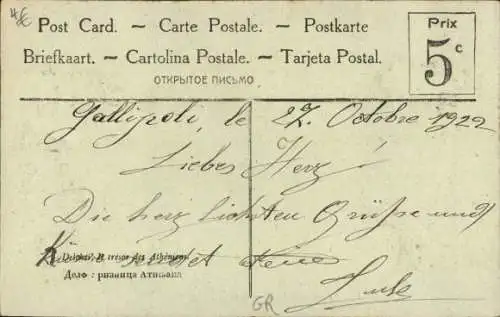 4€
Post Card. – Carte Postale. – Postkarte
Briefkaart. – Cartolina Postale. – Tarjeta Postal.
ОТКРЫТОЕ ПИСЬМО
Prix
5c
Gallipoli, le 27. Octobre 1922
Liebes Herz!
Die herzlichsten Grüße und
sendet
Delphes, Le trésor des Athéniens
Дело: ризница Атињана
GR